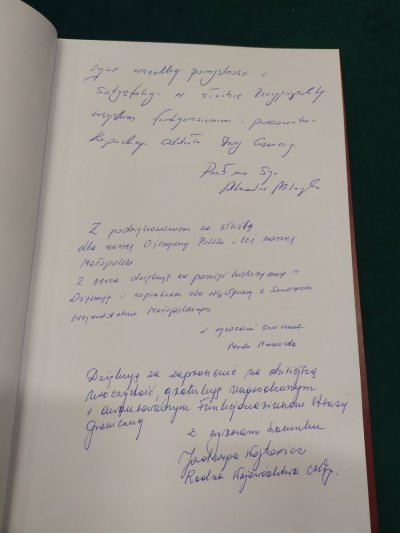 Życzę wszelkiej pomyślności i
satysfakcji w służbie Rzeczypospolitej
wszystkim funkcjonariuszom i pracownikom
Karpackiego Oddziału Straży Granicznej
Z podziękowaniem za służbę
dla naszej Ojczyzny Polski i tej naszej
Małopolski
Z serca dziękuję za pamięć historyczną
Dziękuję i zapraszam do współpracy z Samorządem
Województwa Małopolskiego
z wyrazami szacunku
Dziękuję za zaproszenie na dzisiejszą
uroczystość, gratuluję nagrodzonym
i awansowanym funkcjonariuszom Straży
Granicznej
Z wyrazami szacunku
Jadwiga Wójtowicz
Radna Województwa